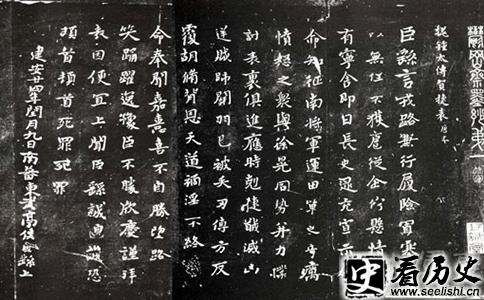 鬱岡齋墨妙第一
魏鍾太傅賀捷表唐本
臣繇言戎路兼行履險冒寒
以無任不獲扈從企佇懸情
有寧舍即日長史逯充宣示
命知征南將軍運田單之奇厲
憤怒之眾與徐晃同勢并力撲
討表裏俱進應時剋捷馘滅凶
逆賊帥關羽已被矢刃傅方反
覆胡脩背恩天道禍淫不終
命奉聞嘉憙喜不自勝望路
笑踊躍逸豫臣不勝欣慶謹拜
表因便宜上聞臣繇誠惶誠恐
頓首頓首死罪死罪
建安廿四年閏月九日南蕃東武亭侯臣繇上
史看历史
www.seelishi.cn